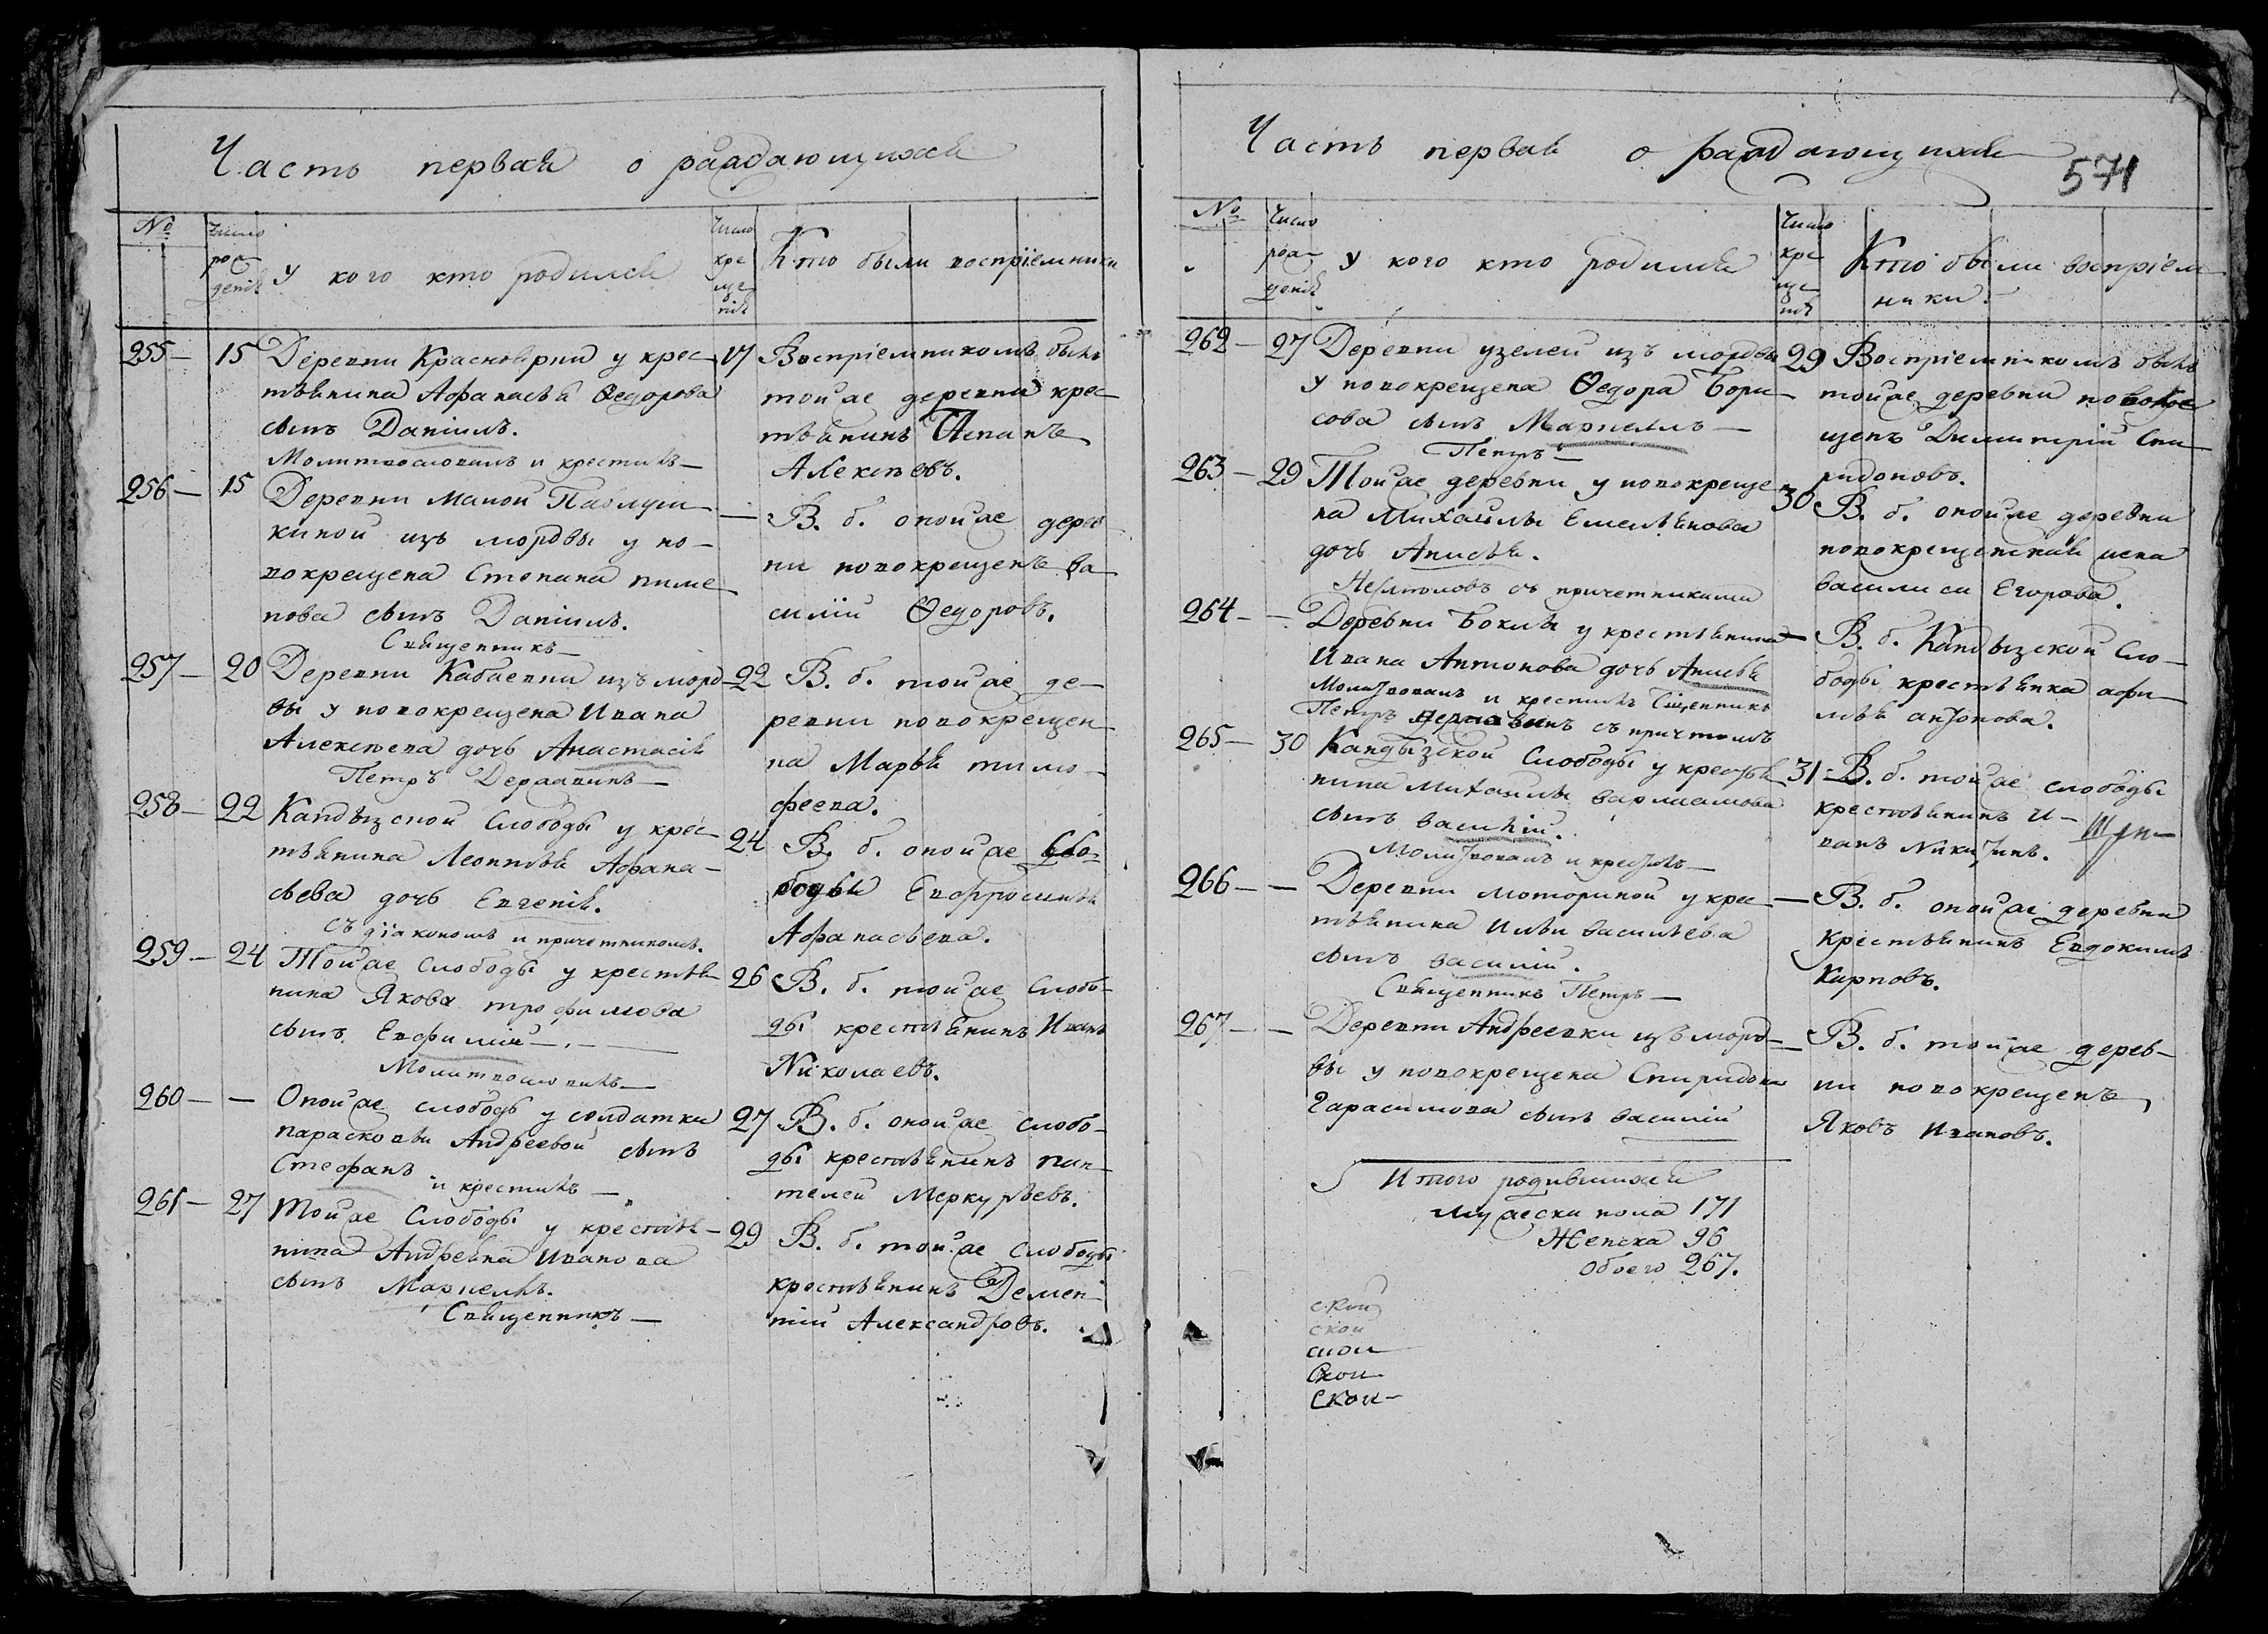 Часть первая о раждающихся
№
Число рождения
У кого кто родился
Число крещения
Кто были воспріемники
255 — 15
Деревни Красноярки у крес-
тьянина Афанасья Ѳедорова
сынъ Даніилъ.
Молитвословилъ и крестилъ —
17
Воспріемникомъ былъ
тойже деревни крес-
тьянинъ
Алексѣевъ.
256 — 15
Деревни Малой Павлуш-
киной изъ мордвы у но-
вокрещена Степана пиме
нова сынъ Даніилъ.
Священникъ —
—
В. б. оной же дерев
ни новокрещенъ ва
силій Ѳедоровъ.
257 — 20
Деревни Кабаевки изъ морд-
вы у новокрещена Ивана
Алексѣева дочь Анастасія
Петръ Державинъ —
22
В. б. тойже де-
ревни новокрещен
ка Марья тимо-
феева.
258 — 22
Кандызской Слободы у крес-
тьянина Леонтья Афана-
сьева дочь Евгенія.
Съ діакономъ и причетникомъ.
24
В. б. оной же Сло-
боды Евфросинья
Афанасьева.
259 — 24
Тойже Слободы у крестья-
нина Якова трофимова
сынъ Евфимій —
Молитвословилъ —
26
В. б. тойже Слобо-
ды крестьянинъ Иванъ
Николаевъ.
260 — —
Оной же слободы у солдатки
парасковьи Андреевой сынъ
Стефанъ
и крестилъ —
27
В. б. оной же слобо-
ды крестьянинъ пан-
телей Меркурьевъ.
261 — 27
Тойже Слободы у крестья-
нина Андрея Иванова
сынъ Маркелъ.
Священникъ —
29
В. б. тойже Слободы
крестьянинъ Демен-
тій Александровъ.
Часть первая о раждающихся
571
№
Число рождения
У кого кто родился
Число крещения
Кто были воспріем
ники
262 — 27
Деревни узелей изъ мордвы
у новокрещена Ѳедора Бори-
сова сынъ Маркеллъ —
Петръ —
29
Воспріемникомъ былъ
тойже деревни новокре
щенъ Димитрій Спи-
ридоновъ.
263 — 29
Тойже деревни у новокреще-
на Михайлы Емельянова
дочь Анисья.
съ причетниками
30
В. б. оной же деревни
новокрещенская жена
василиса Егорова.
264 — —
Деревни Боклы у крестьянина
Ивана Антонова дочь Анисья
Молитвовалъ и крестилъ Священникъ
Петръ Державинъ съ причтомъ
—
В. б. Кандызской Сло-
боды крестьянка афи-
мья антонова.
265 — 30
Кандызской Слободы у крестья
нина Михайлы варламова
сынъ василій.
Молитвовалъ и крестилъ —
31
В. б. тойже слободы
крестьянинъ И-
ванъ Никитинъ.
266 — —
Деревни Моториной у крес-
тьянина Ильи васильева
сынъ василій.
Священникъ Петръ —
—
В. б. оной же деревни
крестьянинъ Евдокимъ
Карповъ.
267 — —
Деревни Андреевки изъ морд-
вы у новокрещена Спиридона
Гарасимова сынъ василій
—
В. б. тойже дерев-
ни новокрещенъ
Яковъ Ивановъ.
Итого родившихся
мужеска пола 171
Женска 96
Обоего 267.
ской
ской
ской
Скои
Скои —